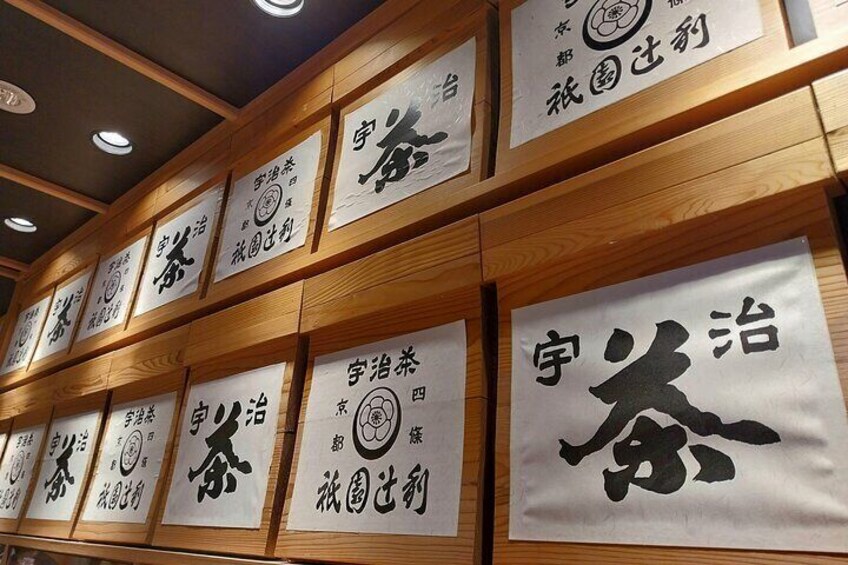 宇治茶
祇園辻利
宇治
茶
宇治茶
四條
京都
祇園辻利
宇治
茶
宇治茶
四條
京都
祇園辻利
宇治
茶
條
京都
祇園辻利
宇治茶
祇園辻利
宇治
茶
宇治茶
四條
京都
祇園辻利
宇治
茶
宇治茶
四條
京都
祇園辻利
宇治
茶